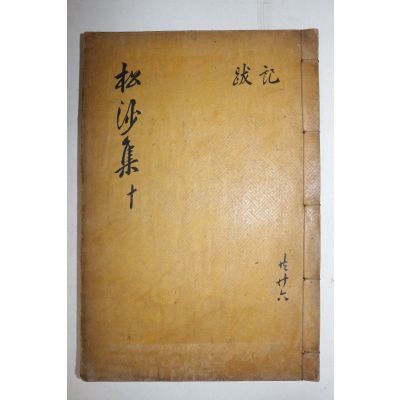 松沙集十
記跋
共廿六